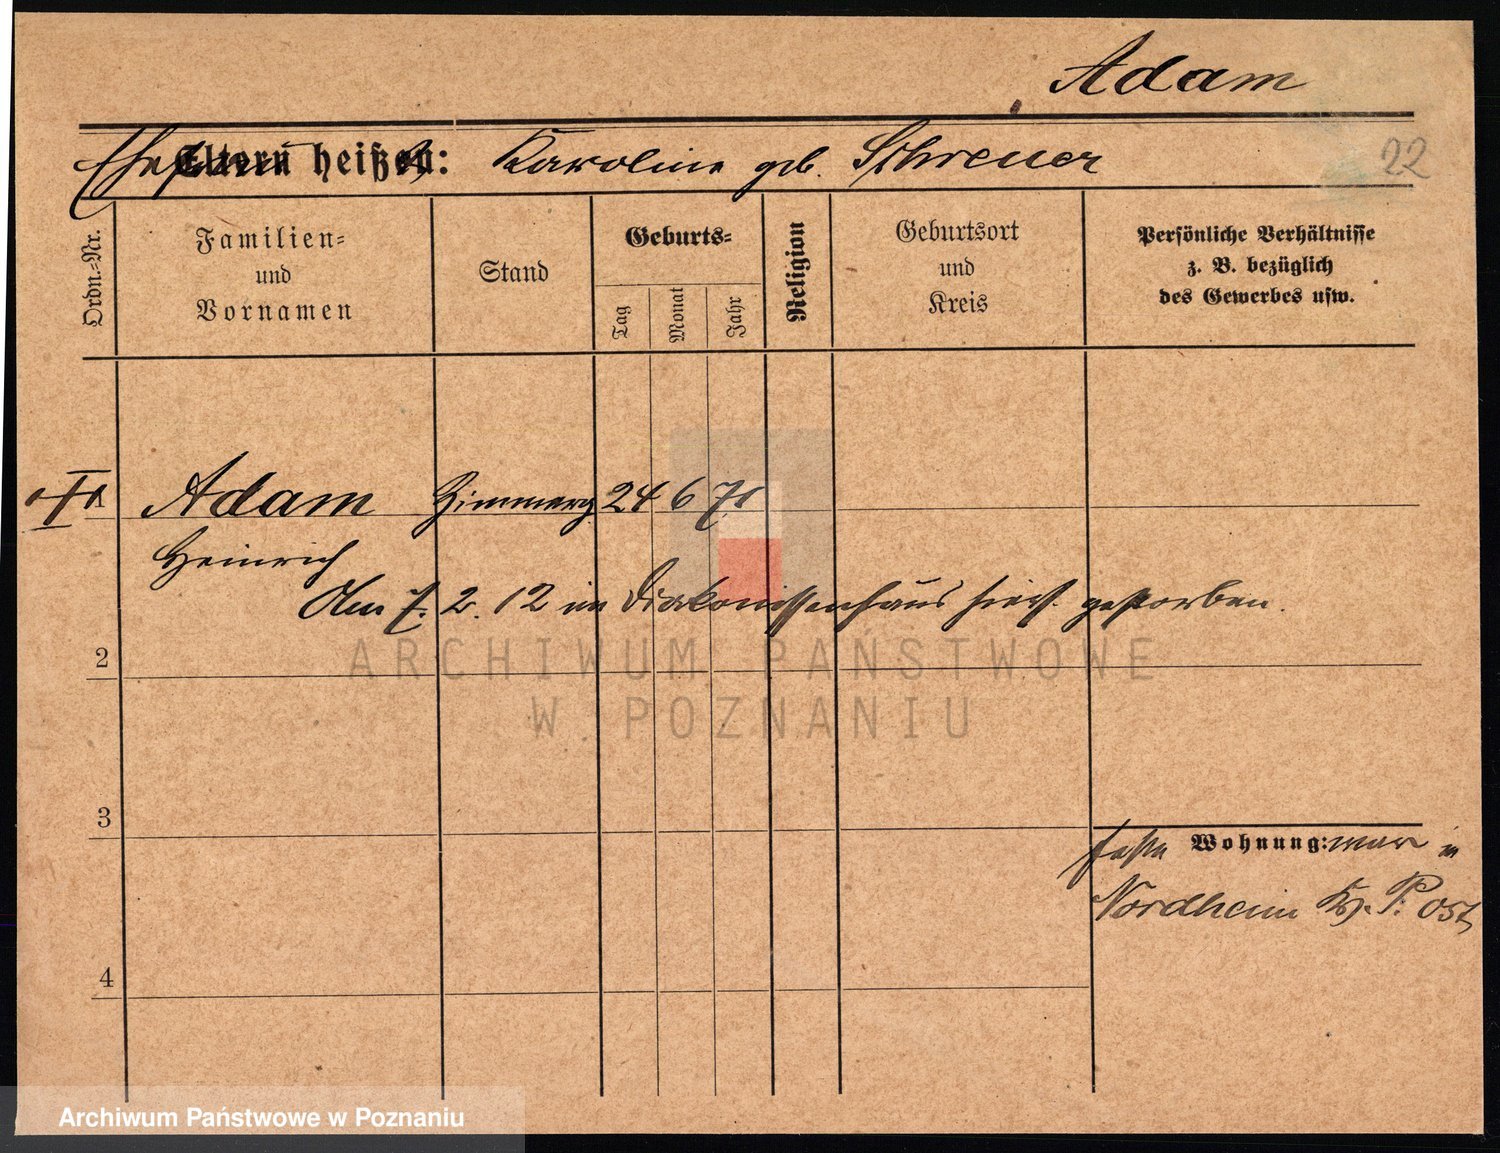 Adam
22
Ehefrau Eltern heißen: Karoline geb. Schreuer
Ordn.-Nr.
Familien-
und
Vornamen
Stand
Geburts-
Tag
Monat
Jahr
Religion
Geburtsort
und
Kreis
Persönliche Verhältnisse
z. B. bezüglich
des Gewerbes usw.
1 Adam Zimmerg. 24 6 71
Heinrich
Am 7. 2. 12 im Diakonissenhaus hier gestorben.
ARCHIWUM PAŃSTWOWE
W POZNANIU
2
3
feste Wohnung: war in
Nordheim Kr. P. Ost
4
Archiwum Państwowe w Poznaniu